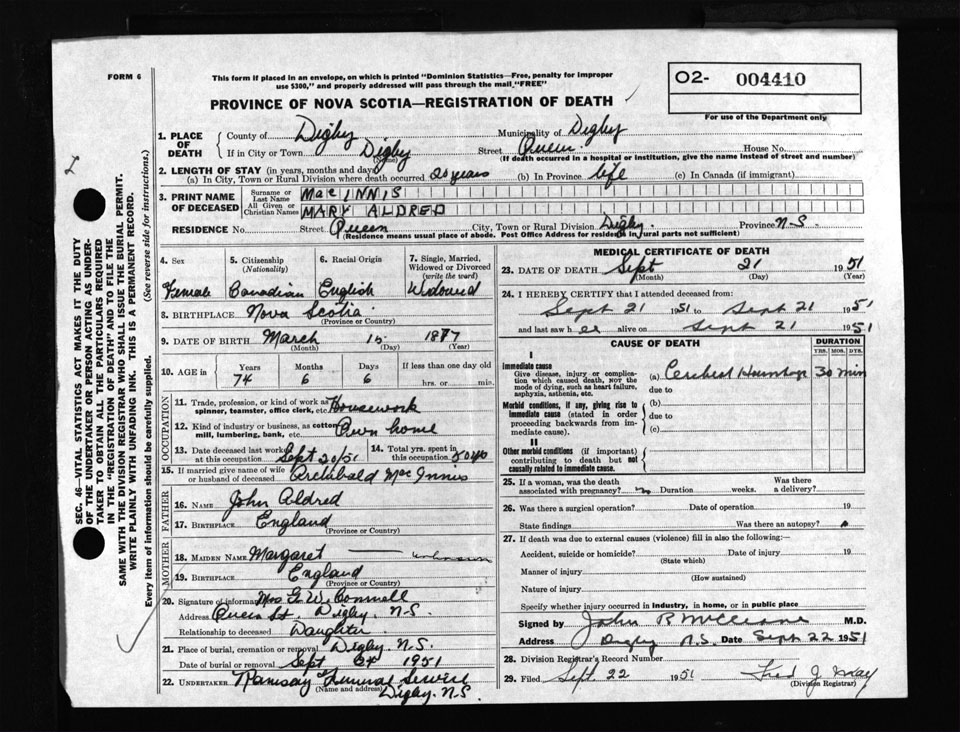 FORM 6
This form if placed in an envelope, on which is printed "Dominion Statistics—Free, penalty for improper
use $300," and properly addressed will pass through the mail, "FREE"
O2- 004410
For use of the Department only
PROVINCE OF NOVA SCOTIA—REGISTRATION OF DEATH
SEC. 46—VITAL STATISTICS ACT MAKES IT THE DUTY
OF THE UNDERTAKER OR PERSON ACTING AS UNDER-
TAKER TO OBTAIN ALL THE PARTICULARS REQUIRED
IN THE "REGISTRATION OF DEATH" AND TO FILE THE
SAME WITH THE DIVISION REGISTRAR WHO SHALL ISSUE THE BURIAL PERMIT.
WRITE PLAINLY WITH UNFADING INK. THIS IS A PERMANENT RECORD.
Every item of information should be carefully supplied. (See reverse side for instructions.)
1. PLACE OF DEATH
County of Digby Municipality of Digby
If in City or Town Digby Street Queen House No.
(If death occurred in a hospital or institution, give the name instead of street and number)
2. LENGTH OF STAY (in years, months and days)
(a) In City, Town or Rural Division where death occurred 20 years (b) In Province life (c) In Canada (if immigrant)
3. PRINT NAME OF DECEASED
Surname or Last Name MacINNIS
All Given or Christian Names MARY ALDRED
RESIDENCE No. Street Queen City, Town or Rural Division Digby Province N-S
(Residence means usual place of abode. Post Office Address for residents in rural parts not sufficient)
4. Sex Female
5. Citizenship (Nationality) Canadian
6. Racial Origin English
7. Single, Married, Widowed or Divorced (write the word) Widowed
8. BIRTHPLACE Nova Scotia
(Province or Country)
9. DATE OF BIRTH March 15 1877
(Month) (Day) (Year)
10. AGE IN Years Months Days If less than one day old
74 6 6 hrs. or min.
OCCUPATION
11. Trade, profession, or kind of work as spinner, teamster, office clerk, etc. Housework
12. Kind of industry or business, as cotton mill, lumbering, bank, etc. Own home
13. Date deceased last worked at this occupation Sept 20/51
14. Total yrs. spent in this occupation
15. If married give name of wife or husband of deceased Archibald MacInnis
FATHER
16. NAME John Aldred
17. BIRTHPLACE England
(Province or Country)
MOTHER
18. MAIDEN NAME Margaret — unknown
19. BIRTHPLACE England
(Province or Country)
20. Signature of informant Mrs G. W. Connell
Address Queen St. Digby. N.S.
Relationship to deceased Daughter
21. Place of burial, cremation or removal Digby. N.S.
Date of burial or removal Sept 1951
22. UNDERTAKER Ramsay Funeral Service
(Name and address) Digby. N.S.
MEDICAL CERTIFICATE OF DEATH
23. DATE OF DEATH Sept 21 1951
(Month) (Day)
24. I HEREBY CERTIFY that I attended deceased from:
Sept 21 1951 to Sept 21 1951
and last saw her alive on Sept 21 1951
CAUSE OF DEATH DURATION
YRS. MOS. DYS.
I
Immediate cause
Give disease, injury or complica-
tion which caused death, NOT the
mode of dying, such as heart failure,
asphyxia, asthenia, etc.
(a) Cerebral Hemorrhage 30 min
due to
Morbid conditions, if any, giving rise to
immediate cause (stated in order
proceeding backwards from im-
mediate cause).
(b)
due to
(c)
II
Other morbid conditions (if important)
contributing to death but not
causally related to immediate cause.
25. If a woman, was the death associated with pregnancy? no Duration weeks. Was there a delivery?
26. Was there a surgical operation? Date of operation 19
State findings Was there an autopsy?
27. If death was due to external causes (violence) fill in also the following:—
Accident, suicide or homicide? Date of injury 19
(State which)
Manner of injury
(How sustained)
Nature of injury
Specify whether injury occurred in industry, in home, or in public place
Signed by John R McCleave M.D.
Address Digby N.S. Date Sept 22 1951
28. Division Registrar's Record Number
29. Filed Sept. 22 1951 Fred J
(Division Registrar)